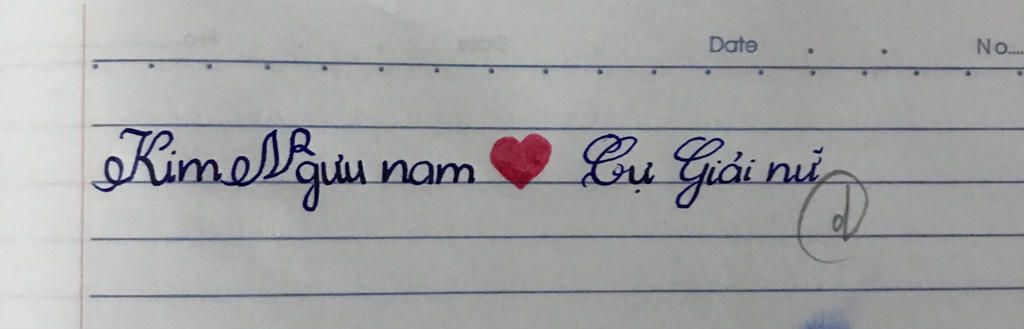 Date No....
Kim Ngưu nam ❤ Cự Giải nữ
d